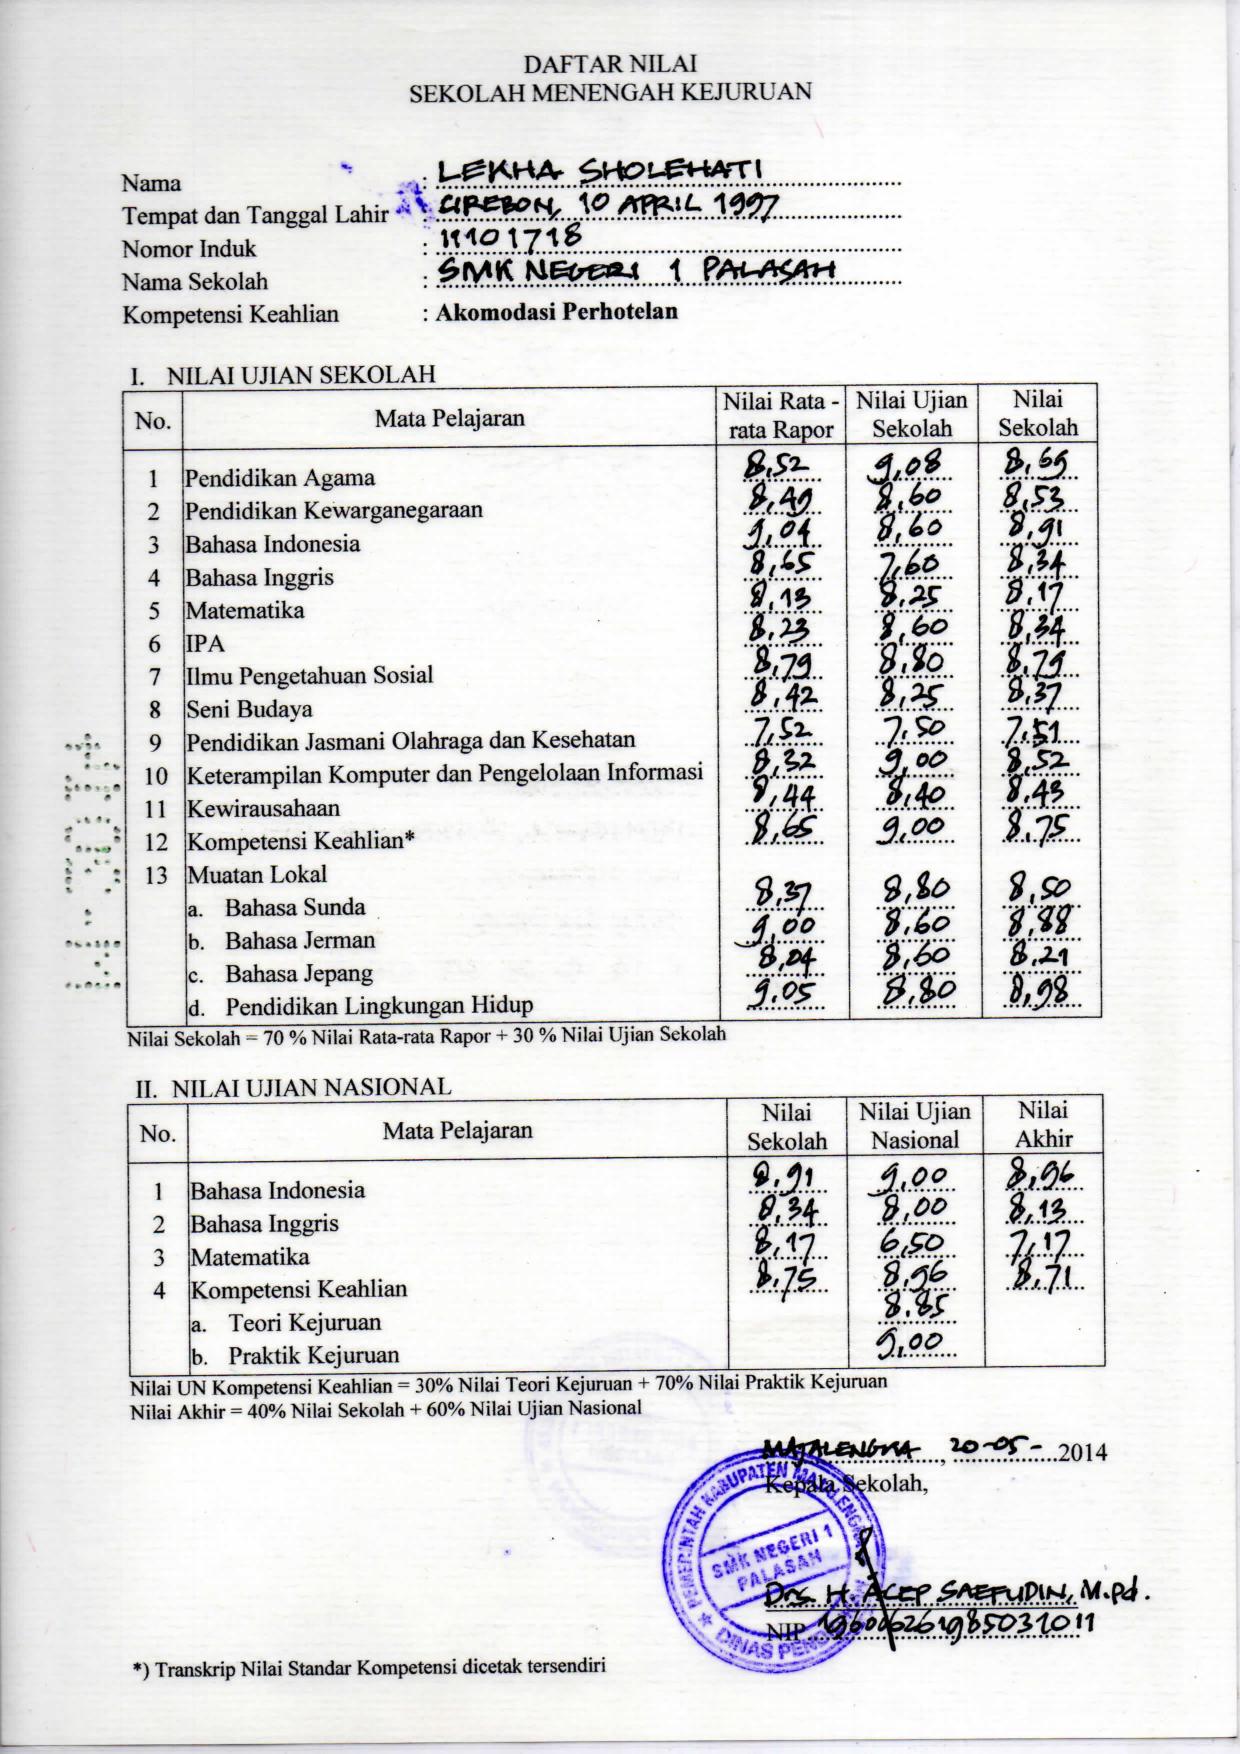 DAFTAR NILAI
SEKOLAH MENENGAH KEJURUAN
Nama : LEKHA SHOLEHATI
Tempat dan Tanggal Lahir : CIREBON, 10 APRIL 1997
Nomor Induk : 11101718
Nama Sekolah : SMK NEGERI 1 PALASAH
Kompetensi Keahlian : Akomodasi Perhotelan
I. NILAI UJIAN SEKOLAH
No. Mata Pelajaran Nilai Rata - rata Rapor Nilai Ujian Sekolah Nilai Sekolah
1 Pendidikan Agama 8,52 9,08 8,69
2 Pendidikan Kewarganegaraan 8,49 8,60 8,53
3 Bahasa Indonesia 9,04 8,60 8,91
4 Bahasa Inggris 8,65 7,60 8,34
5 Matematika 8,13 8,25 8,17
6 IPA 8,23 8,60 8,34
7 Ilmu Pengetahuan Sosial 8,79 8,80 8,79
8 Seni Budaya 8,42 8,25 8,37
9 Pendidikan Jasmani Olahraga dan Kesehatan 7,52 7,50 7,51
10 Keterampilan Komputer dan Pengelolaan Informasi 8,32 9,00 8,52
11 Kewirausahaan 8,44 8,40 8,43
12 Kompetensi Keahlian* 8,65 9,00 8,75
13 Muatan Lokal
a. Bahasa Sunda 8,37 8,80 8,50
b. Bahasa Jerman 9,00 8,60 8,88
c. Bahasa Jepang 8,04 8,60 8,21
d. Pendidikan Lingkungan Hidup 9,05 8,80 8,98
Nilai Sekolah = 70 % Nilai Rata-rata Rapor + 30 % Nilai Ujian Sekolah
II. NILAI UJIAN NASIONAL
No. Mata Pelajaran Nilai Sekolah Nilai Ujian Nasional Nilai Akhir
1 Bahasa Indonesia 8,91 9,00 8,96
2 Bahasa Inggris 8,34 8,00 8,13
3 Matematika 8,17 6,50 7,17
4 Kompetensi Keahlian 8,75 8,96 8,71
a. Teori Kejuruan 8,85
b. Praktik Kejuruan 9,00
Nilai UN Kompetensi Keahlian = 30% Nilai Teori Kejuruan + 70% Nilai Praktik Kejuruan
Nilai Akhir = 40% Nilai Sekolah + 60% Nilai Ujian Nasional
MAJALENGKA, 20-05-2014
Kepala Sekolah,
PEMERINTAH KABUPATEN MAJALENGKA
SMK NEGERI 1
PALASAH
DINAS
Drs. H. ACEP SAEFUDIN, M.Pd.
NIP. 
*) Transkrip Nilai Standar Kompetensi dicetak tersendiri